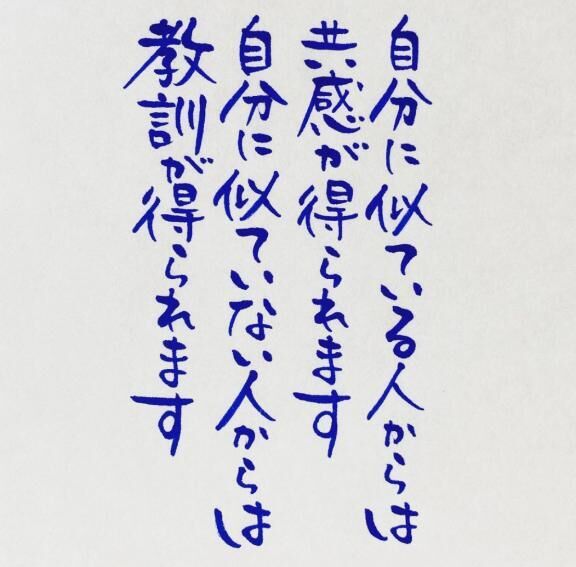 自分に似ている人からは
共感が得られます
自分に似ていない人からは
教訓が得られます